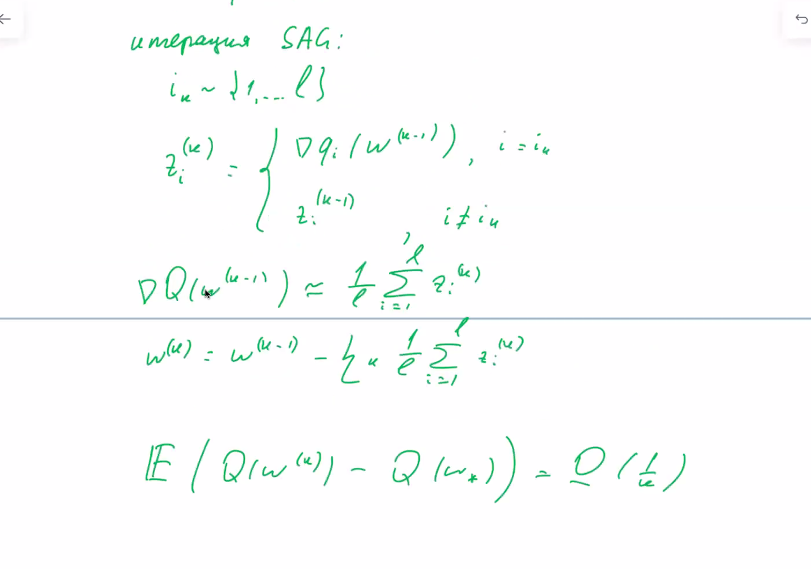 итерация SAG:
iₖ ~ {1,... ℓ}
zᵢ⁽ᵏ⁾ = { ∇qᵢ(w⁽ᵏ⁻¹⁾), i = iₖ
zᵢ⁽ᵏ⁻¹⁾, i ≠ iₖ
∇Q(w⁽ᵏ⁻¹⁾) ≈ 1/ℓ ∑ᵢ₌₁^ℓ zᵢ⁽ᵏ⁾
w⁽ᵏ⁾ = w⁽ᵏ⁻¹⁾ - ηₖ 1/ℓ ∑ᵢ₌₁^ℓ zᵢ⁽ᵏ⁾
𝔼(Q(w⁽ᵏ⁾) - Q(w⁎)) = O(1/k)